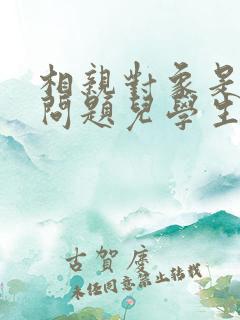 相親對象是
問題兒學生
古賀慶
未任同意禁止转载